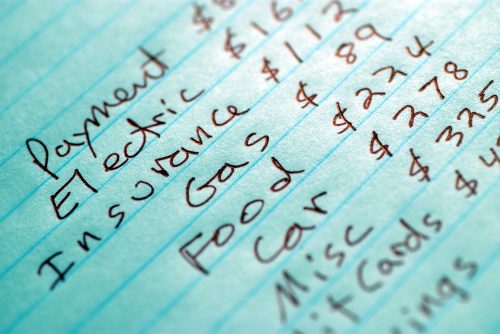 Payment $8
Electric $16
Insurance $112
Gas $89
Food $224
Car $278
Misc $325
Cards $4